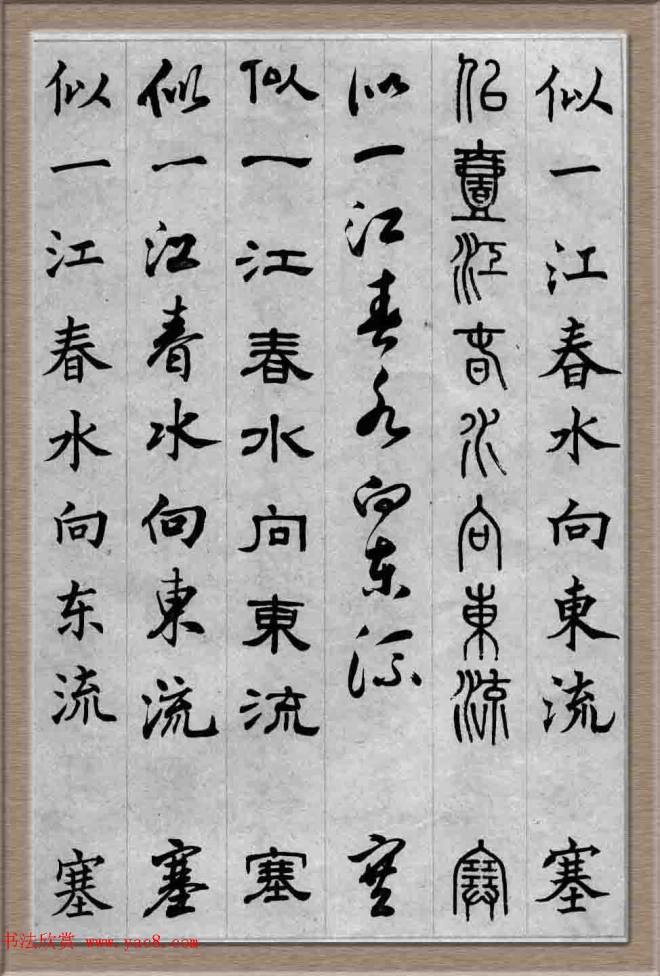 似一江春水向東流 塞
似壹江春水向東流 塞
似一江春水向东流 塞
似一江春水向東流 塞
似一江春水向東流 塞
似一江春水向东流 塞
书法欣赏 www.yac8.com